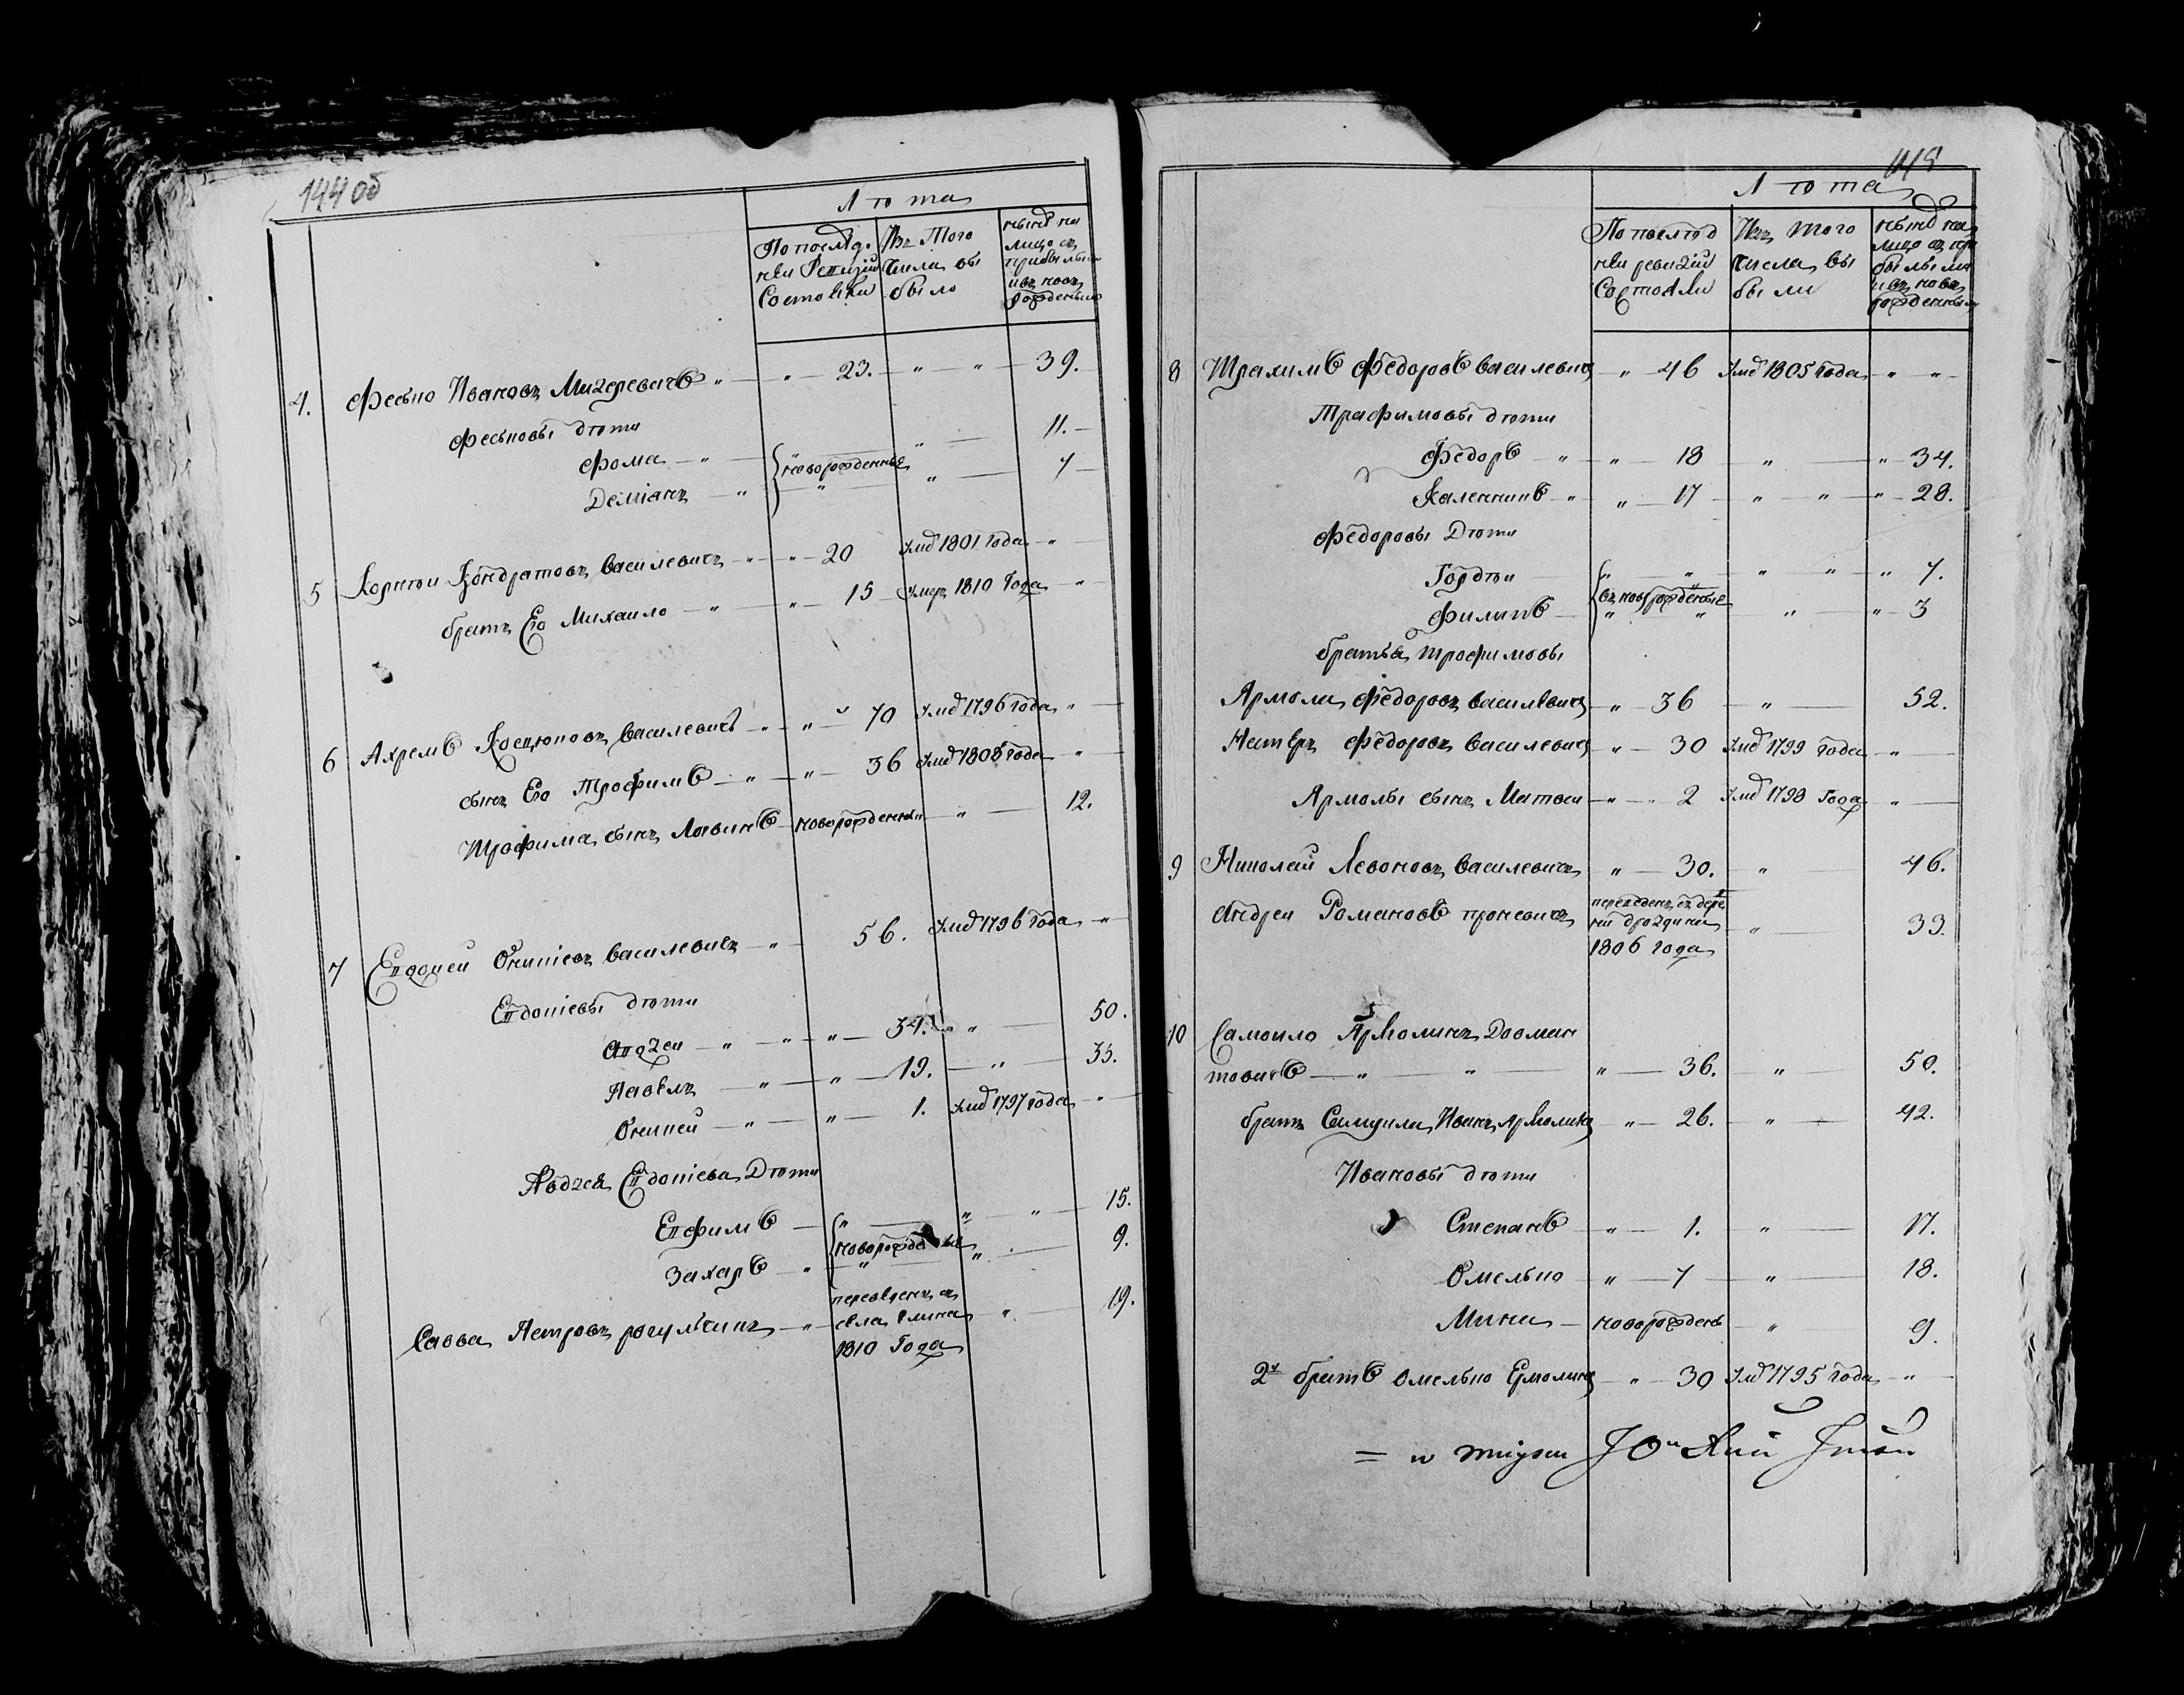 144 об
Лѣта
По послѣд-
ней Ревизіи
Состояли
Изъ Того
числа вы
было
нынѣ на
лицо съ
прибылыми
и въ новь
рожденными
4. Фесько Ивановъ Мигеревичъ „ „ 23. „ „ 39.
Феськовы дѣти
Фома „ новорожденные „ 11.
Деміанъ „ „ „ 7
5 Корнѣи Кондратовъ василевичъ „ „ 20 умѣ 1801 года „
братъ Его Михаило „ „ 15 умеръ 1810 Года „
6 Ахремъ Костюковъ василевичъ „ „ 70 умѣ 1796 года „
сынъ Его Трофимъ „ „ 36 умѣ 1808 года „
Трофима сынъ Логвинъ новорожденный „ 12.
7 Евдокей Оникіевъ василевичъ „ 56. умѣ 1796 года „
Евдокіевы дѣти
Авдѣи „ „ „ 34. „ „ 50.
Павелъ „ „ 19. „ 35.
Оникей „ „ 1. умѣ 1797 года „
Авдѣя Евдокіева Дѣти
Евфимъ „ „ „ 15.
новорожденные
Захаръ „ „ „ 9.
Савва Петровъ рогулькинъ „ переведенъ съ
села Глинка „ 19.
1810 Года
Лѣта
По послѣд
ней ревизіи
Состояли
Изъ того
числа вы
были
нынѣ на
лицо съ при
былыми
и въ новь
рожденными
8 Трахимъ Федоровъ василевичъ „ 46 умѣ 1805 года „ „
Трафимовы дѣти
Федоръ „ „ 18 „ „ 34.
Каленникъ „ „ 17 „ „ „ 28.
Федоровы Дѣти
Гордѣи „ „ „ „ „ 7.
въ новь рожденные
Филипъ „ „ „ „ 3
братья трофимовы
Армоли Федоровъ василевичъ „ 36 „ 52.
Нестеръ Федоровъ василевичъ „ 30 умѣ 1799 года „
Армолы сынъ Матвеи „ 2 умѣ 1798 Года „
9 Николай Левоновъ василевичъ „ 30. „ 46.
Андреи Романовъ проневичъ переведенъ съ дере
ни дроздина „ 33.
1806 года
10 Самоило Ярмолинъ Довман
товичъ „ „ „ 36. „ 50.
братъ Самуила Иванъ Ярмолинъ „ 26. „ 42.
Ивановы дѣти
Степанъ „ 1. „ 17.
Омелько „ 7 „ 18.
Мина новорожденъ „ 9.
2й братъ Омелько Ермолинъ „ 30 умѣ 1795 года „